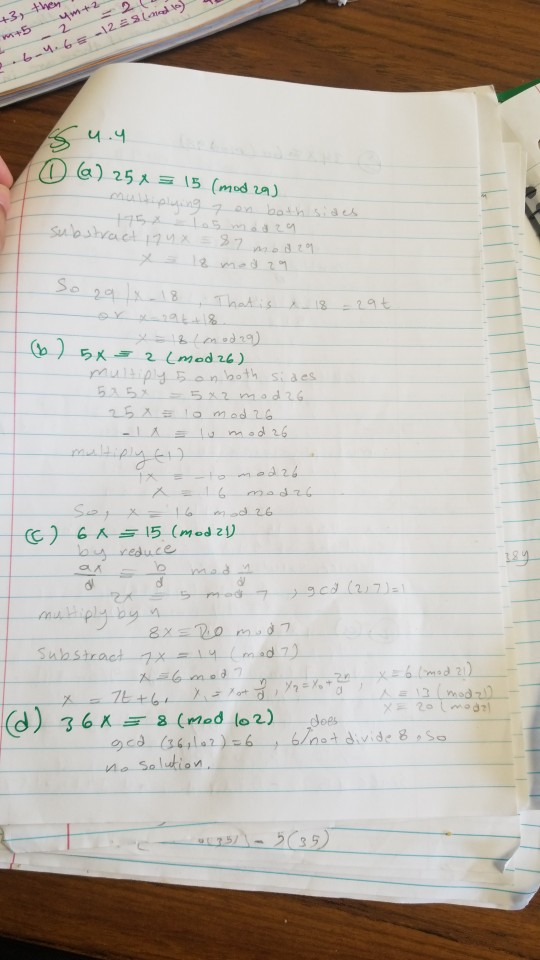 +3, then
m+5 - 2 4m+2 = 2
2 · 6 - 4 · 6 ≡ -12 ≡ 8 (mod 10)
§ 4.4
① (a) 25x ≡ 15 (mod 29)
multiplying 7 on both sides
175x = 105 mod 29
substract 174x = 87 mod 29
x ≡ 18 mod 29
So 29 | x - 18, That is x - 18 = 29t
or x = 29t + 18
x ≡ 18 (mod 29)
(b) 5x ≡ 2 (mod 26)
multiply 5 on both sides
5x5x = 5x2 mod 26
25x ≡ 10 mod 26
-1x ≡ 10 mod 26
multiply (-1)
1x = -10 mod 26
x = 16 mod 26
So, x = 16 mod 26
(c) 6x ≡ 15 (mod 21)
by reduce
ax/d = b/d mod n/d
2x = 5 mod 7, gcd (2,7)=1
multiply by 4
8x = 20 mod 7
substract 7x = 14 (mod 7)
x = 6 mod 7
x = 7t + 6, x₁ = x₀ + n/d, x₂ = x₀ + 2n/d, x ≡ 6 (mod 21)
x ≡ 13 (mod 21)
x ≡ 20 (mod 21
(d) 36x ≡ 8 (mod 102)
gcd (36,102) = 6, 6 does not divide 8. So
no solution.
- 5(35)